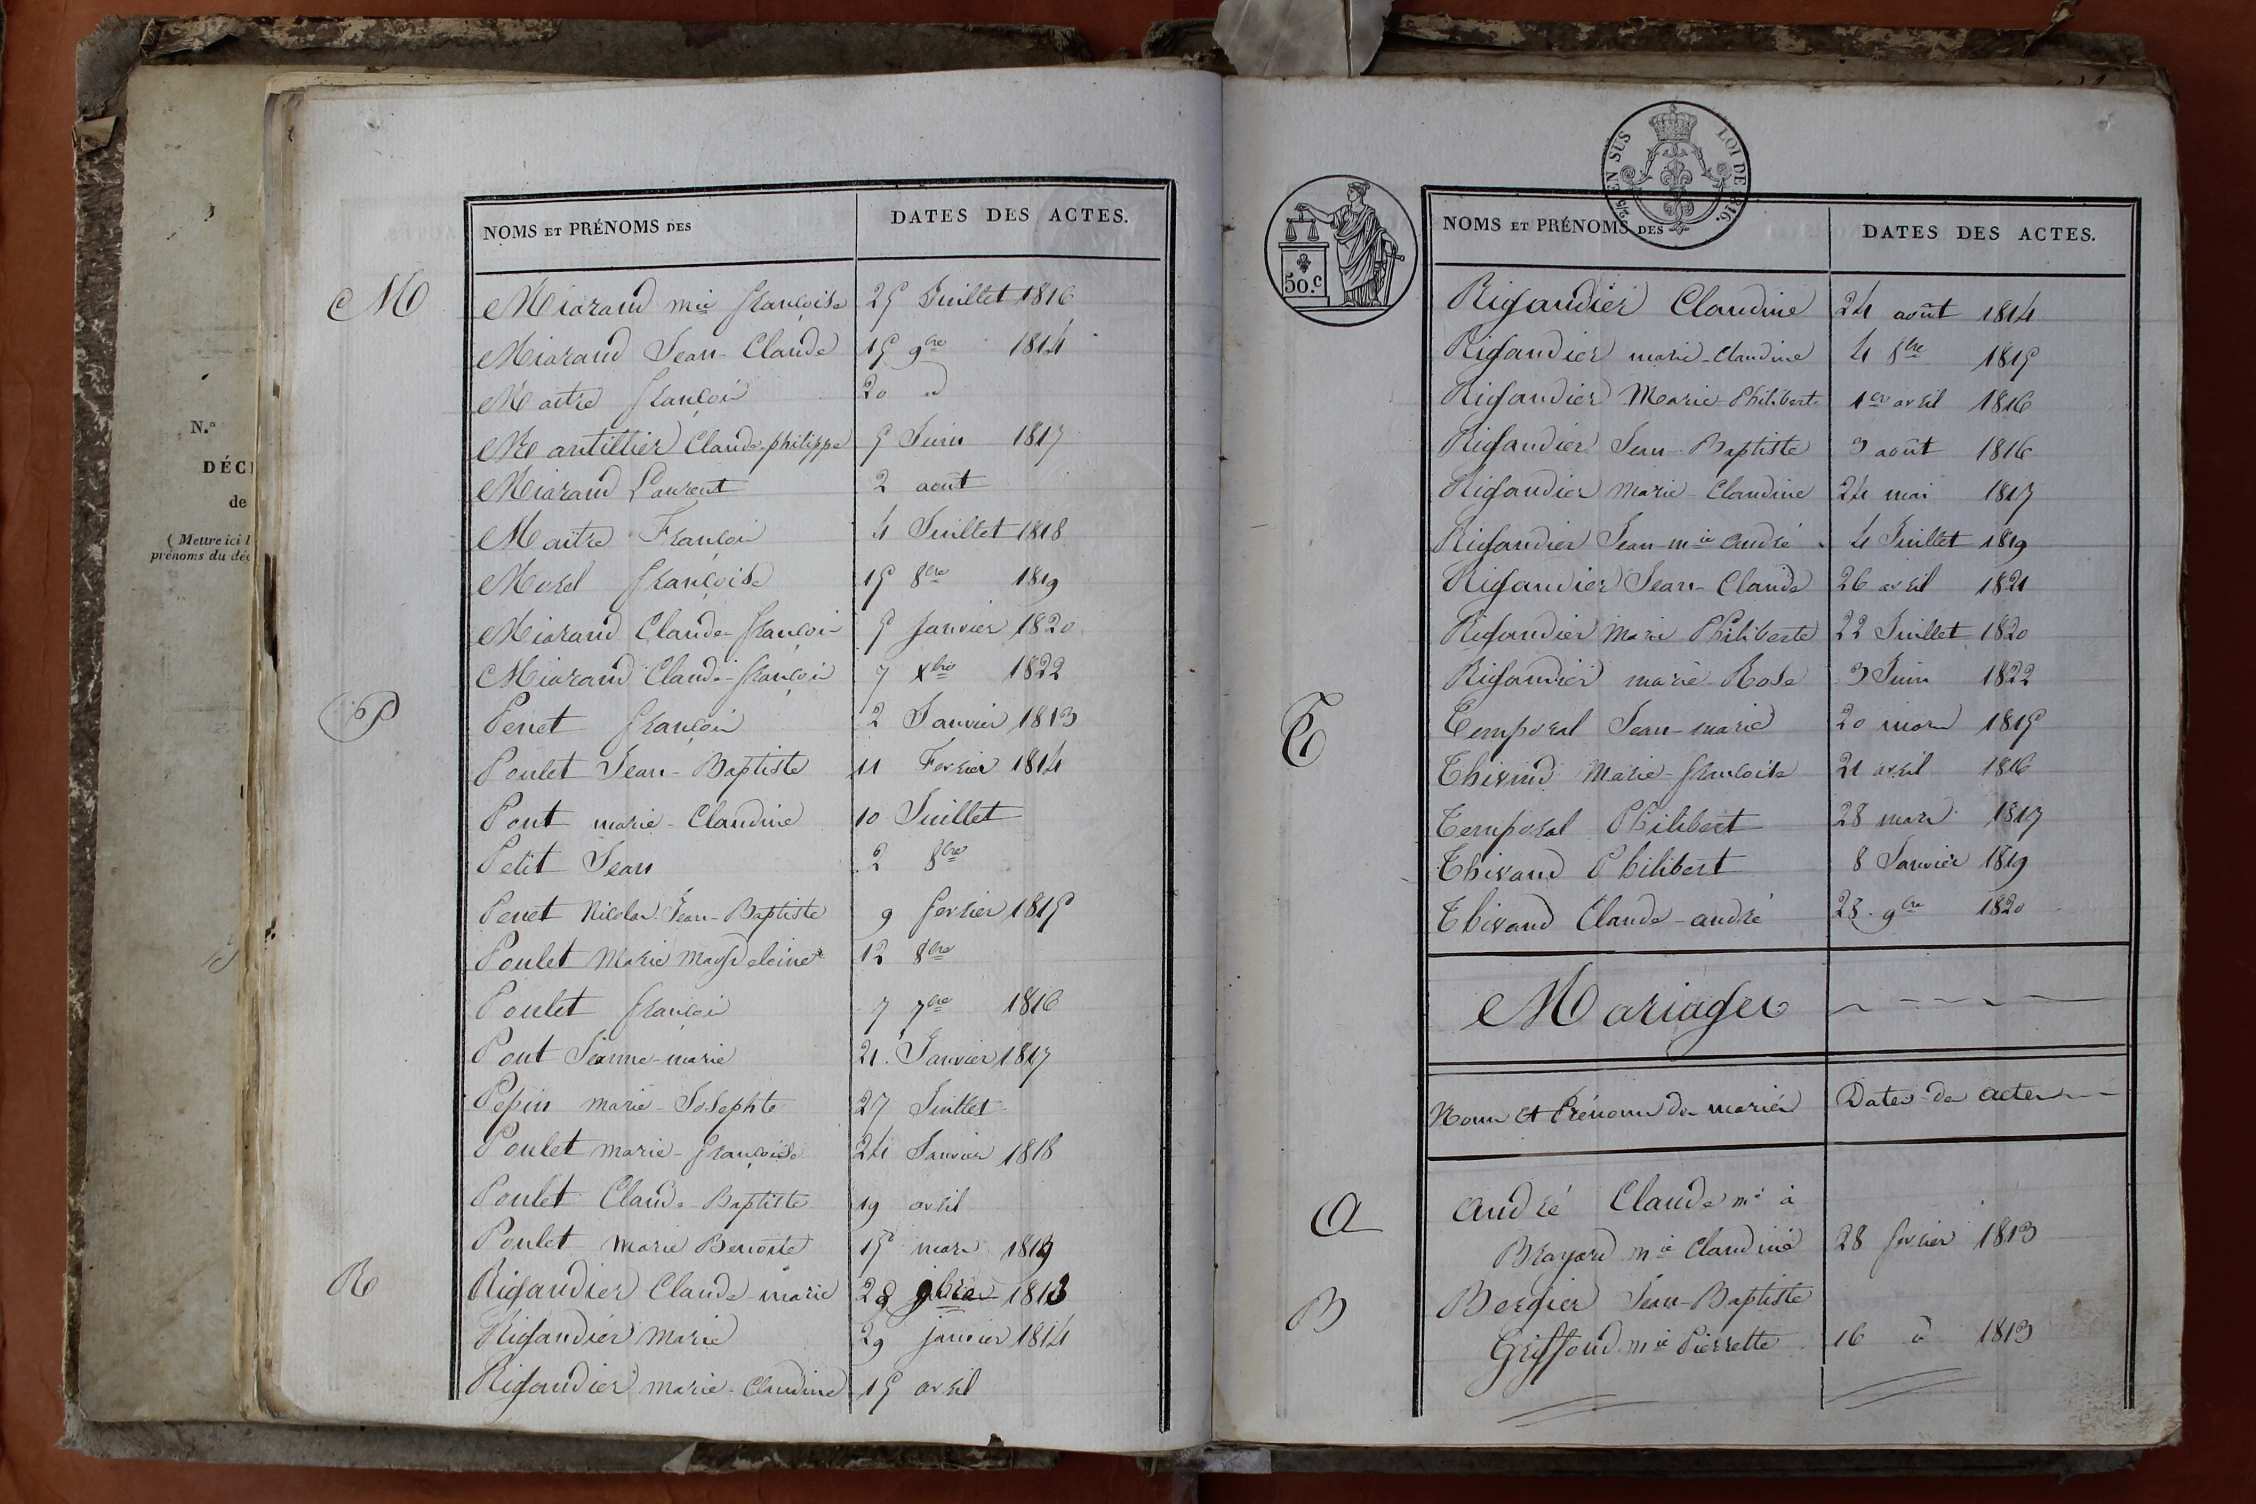 N.°
DÉC
de
( Mettre ici l
prénoms du déc
NOMS ET PRÉNOMS DES
DATES DES ACTES.
M
Miarand mie françoise 25 Juillet 1816
Miarand Jean-Claude 15 9bre 1814
Maitre françois 20 d
Mantillier Claude-philippe 5 Juin 1817
Miarand Laurent 2 août
Maitre François 4 Juillet 1818
Morel françoise 15 8bre 1819
Miarand Claude-françois 5 Janvier 1820
Miarand Claude-françois 7 xbre 1822
P
Penet françois 2 Janvier 1813
Poulet Jean-Baptiste 11 Fevrier 1814
Pont marie-Claudine 10 Juillet
Petit Jean 2 8bre
Penet Nicolas Jean-Baptiste 9 fevrier 1815
Poulet Marie Magdeleine 12 8bre
Poulet françois 7 7bre 1816
Pont Jeanne-marie 21 Janvier 1817
Pepin marie-Josephte 27 Juillet
Poulet marie-françoise 24 Janvier 1818
Poulet Claude-Baptiste 19 avril
Poulet marie Benoite 15 mars 1819
R
Rigaudier Claude-marie 28 9bre 1813
Rigaudier Marie 29 janvier 1814
Rigaudier marie-Claudine 15 avril
EN SUS
LOI DE 1816.
50.c
NOMS ET PRÉNOMS DES
DATES DES ACTES.
Rigaudier Claudine 24 août 1814
Rigaudier marie-Claudine 4 8bre 1815
Rigaudier Marie-Philiberte 1er avril 1816
Rigaudier Jean-Baptiste 3 août 1816
Rigaudier Marie-Claudine 24 mai 1817
Rigaudier Jean-mie andré 4 Juillet 1819
Rigaudier Jean-Claude 26 avril 1821
Rigaudier Marie Philiberte 22 Juillet 1820
Rigaudier marie-Rose 3 Juin 1822
T
Temporal Jean-marie 20 mars 1815
Thivind Marie-françoise 21 avril 1816
Temporal Philibert 28 mars 1817
Thivand Philibert 8 Janvier 1819
Thivand Claude-andré 23 9bre 1820
Mariages
Noms et Prénoms des mariés Dates des actes
A
André Claude mie à
Brayard mie Claudine 28 fevrier 1813
B
Bergier Jean-Baptiste
Griffond mie Pierrette 16 d 1813